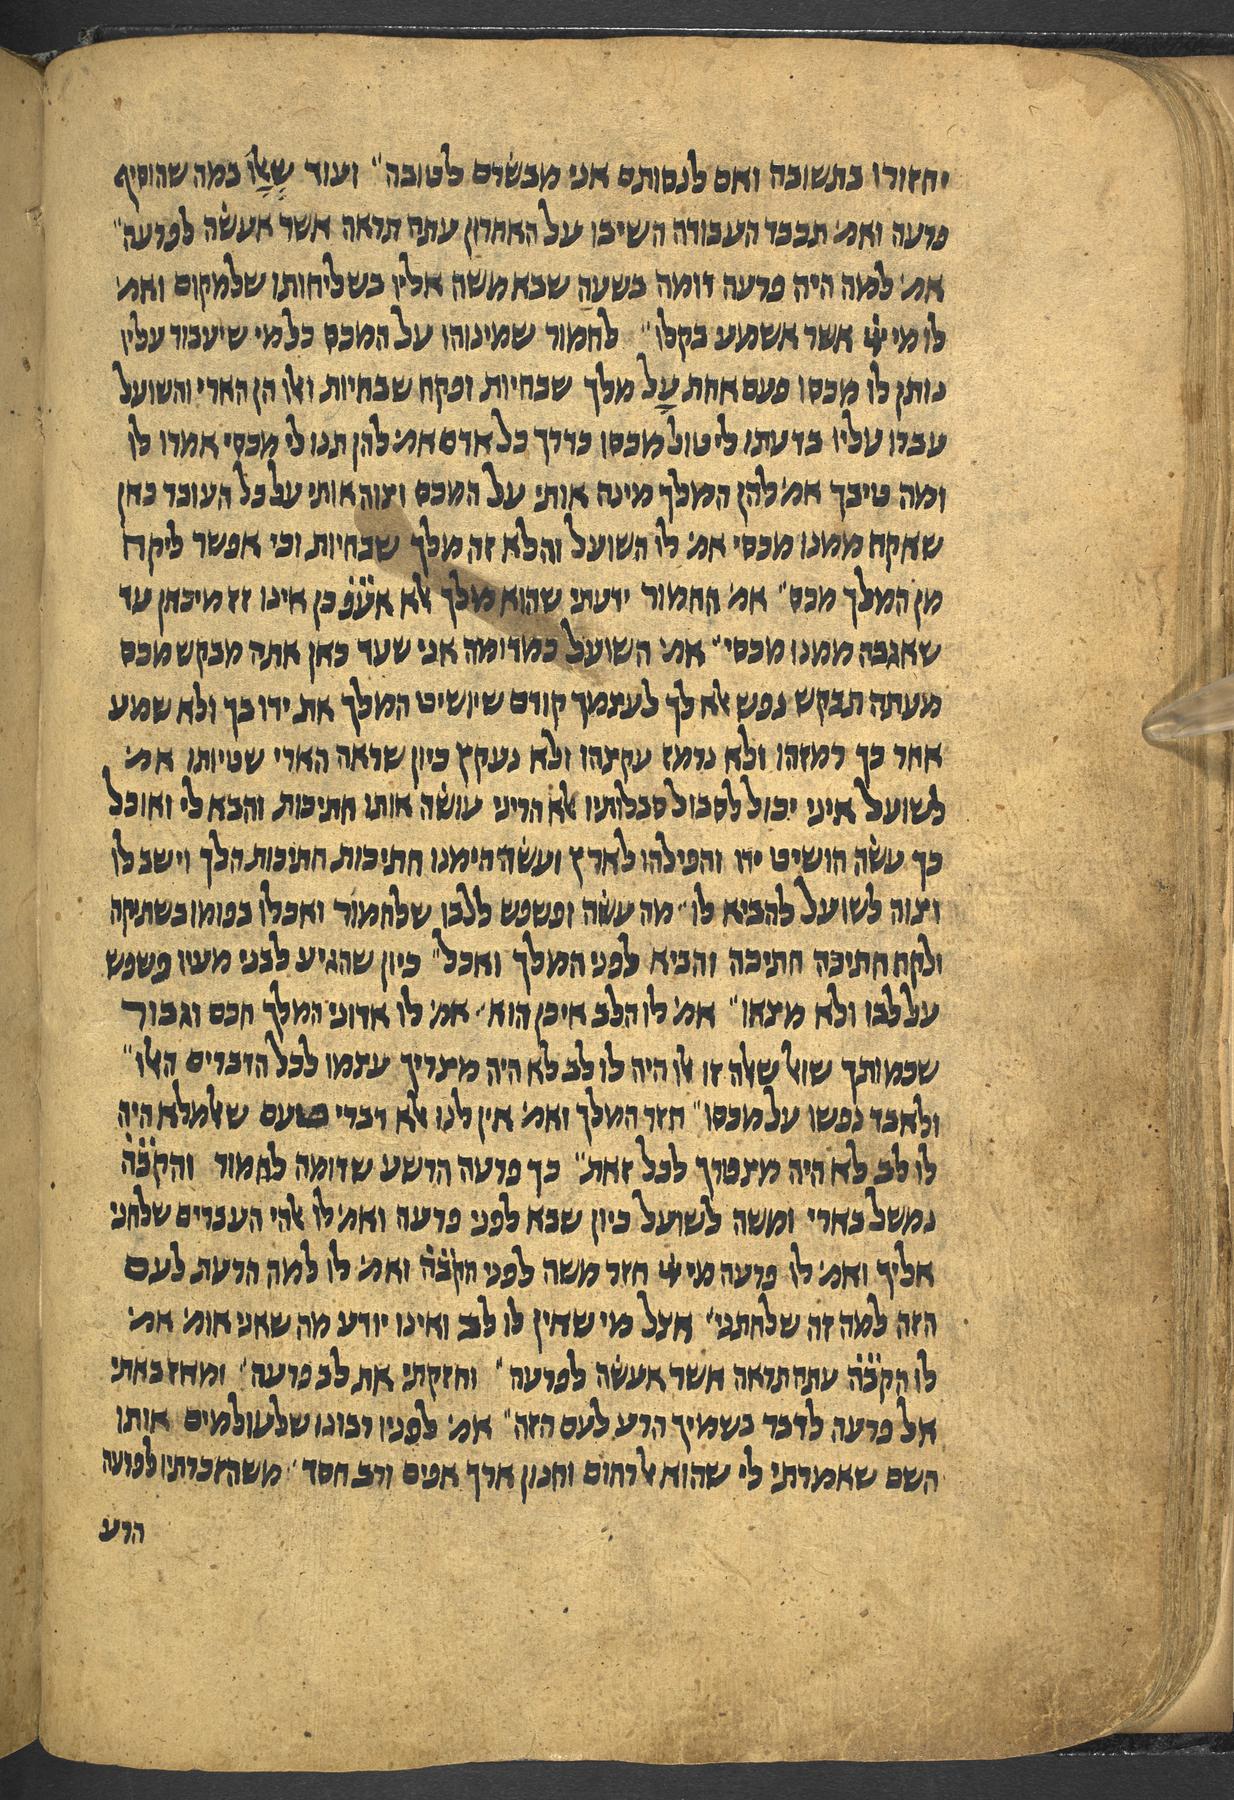 יחזורו בתשובה ואם לנסותם אני מבשרם לטובה״ ועוד שאלו במה שהוסיף
פרעה ואמ׳ תכבד העבודה השיבו על האחרון עתה תראה אשר אעשה לפרעה״
אמ׳ למה היה פרעה דומה בשעה שבא משה אליו בשליחותו שלמקום ואמ׳
לו מי אשר אשמע בקלו״ לחמור שמינוהו על המכס כל מי שיעבור עליו
נותן לו מכסו פעם אחת על מלך שבחיות ופקח שבחיות ואלו הן הארי והשועל
עברו עליו בדעתו ליטול מכסן כדרך כל אדם אמ׳ להן תנו לי מכסי אמרו לו
ומה טיבך אמ׳ להן המלך מינה אותי על המכס וצוה אותי על כל העובר כאן
שאקח ממנו מכסי אמ׳ לו השועל והלא זה מלך שבחיות וכי אפשר ליקח
מן המלך מכס״ אמ׳ החמור ידעתי שהוא מלך אלא אעפ כן אינו זז מיכאן עד
שאגבה ממנו מכסי״ אמ׳ השועל כמדומה אני שעד כאן אתה מבקש מכס
מעתה תבקש נפש אלא לך לעצמך קודם שיושיט המלך את ידו בך ולא שמע
אחר כך רמזהו ולא נרמז עקצהו ולא נעקץ כיון שראה הארי שטיותו אמ׳
לשועל איני יכול לסבול סבלותיו אלא הריני עושה אותו חתיכות והבא לי ואוכל
כך עשה הושיט ידו והפילהו לארץ ועשה הימנו חתיכות חתיכות הלך וישב לו
וצוה לשועל להביא לו״ מה עשה ופשפש ללבו שלחמור ואכלו בפומו בשתיקה
ולקח חתיכה חתיכה והביא לפני המלך ואכל״ כיון שהגיע לבני מעיו פשפש
על לבו ולא מצאו״ אמ׳ לו הלב איכן הוא׳ אמ׳ לו אדוני המלך חכם וגבור
שכמותך שואל שאלה זו אלו היה לו לב לא היה מצריך עצמו לכל הדברים האלו״
ולאבד נפשו על מכסו״ חזר המלך ואמ׳ אין לנו אלא דברי טעם שאלמלא היה
לו לב לא היה מצטרך לכל זאת״ כך פרעה הרשע שדומה לחמור והקבה
נמשל בארי ומשה לשועל כיון שבא לפני פרעה ואמ׳ לו אלהי העברים שלחני
אליך ואמ׳ לו פרעה מי חזר משה לפני הקבה ואמ׳ לו למה הרעת לעם
הזה למה זה שלחתני״ אצל מי שאין לו לב ואינו יודע מה שאני אומ׳ אמ׳
לו הקבה עתה תראה אשר אעשה לפרעה״ וחזקתי את לב פרעה׳ ומאז באתי
אל פרעה לדבר בשמיך הרע לעם הזה״ אמ׳ לפניו רבונו שלעולמים אותו
השם שאמרתי לי שהוא אל רחום וחנון ארך אפים ורב חסד׳ משהזכרתיו לפרעה
הרע